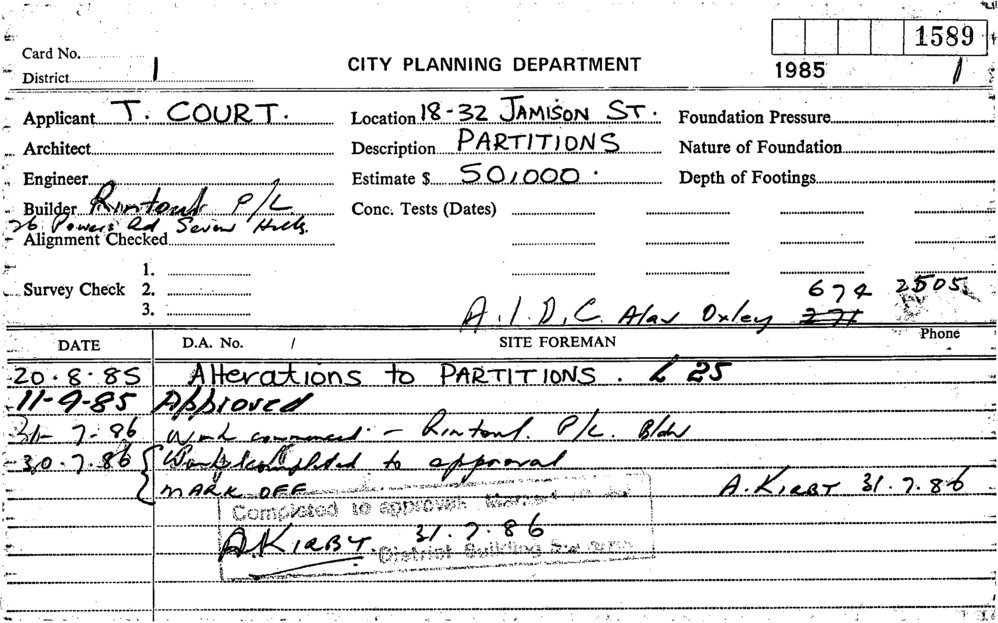 1589
Card No.
CITY PLANNING DEPARTMENT
District 1
1985 1
Applicant T. COURT.
Location 18-32 JAMISON ST.
Foundation Pressure
Architect
Description PARTITIONS
Nature of Foundation
Engineer
Estimate $ 50,000.
Depth of Footings
Builder Rintoul P/L
26 Powers Rd Seven Hills.
Conc. Tests (Dates)
Alignment Checked
1.
Survey Check 2.
3.
674 2505
A.I.D.C. Alan Oxley 271
DATE D.A. No. / SITE FOREMAN Phone
20.8.85 Alterations to PARTITIONS. L 25
11-9-85 Approved
31-7-86 Work commenced - Rintoul. P/L. Bldr
30.7.86 Work completed to approval
MARK OFF A. KIRBY 31.7.86
Completed to approval. Marked
A. KIRBY 31.7.86
District Building